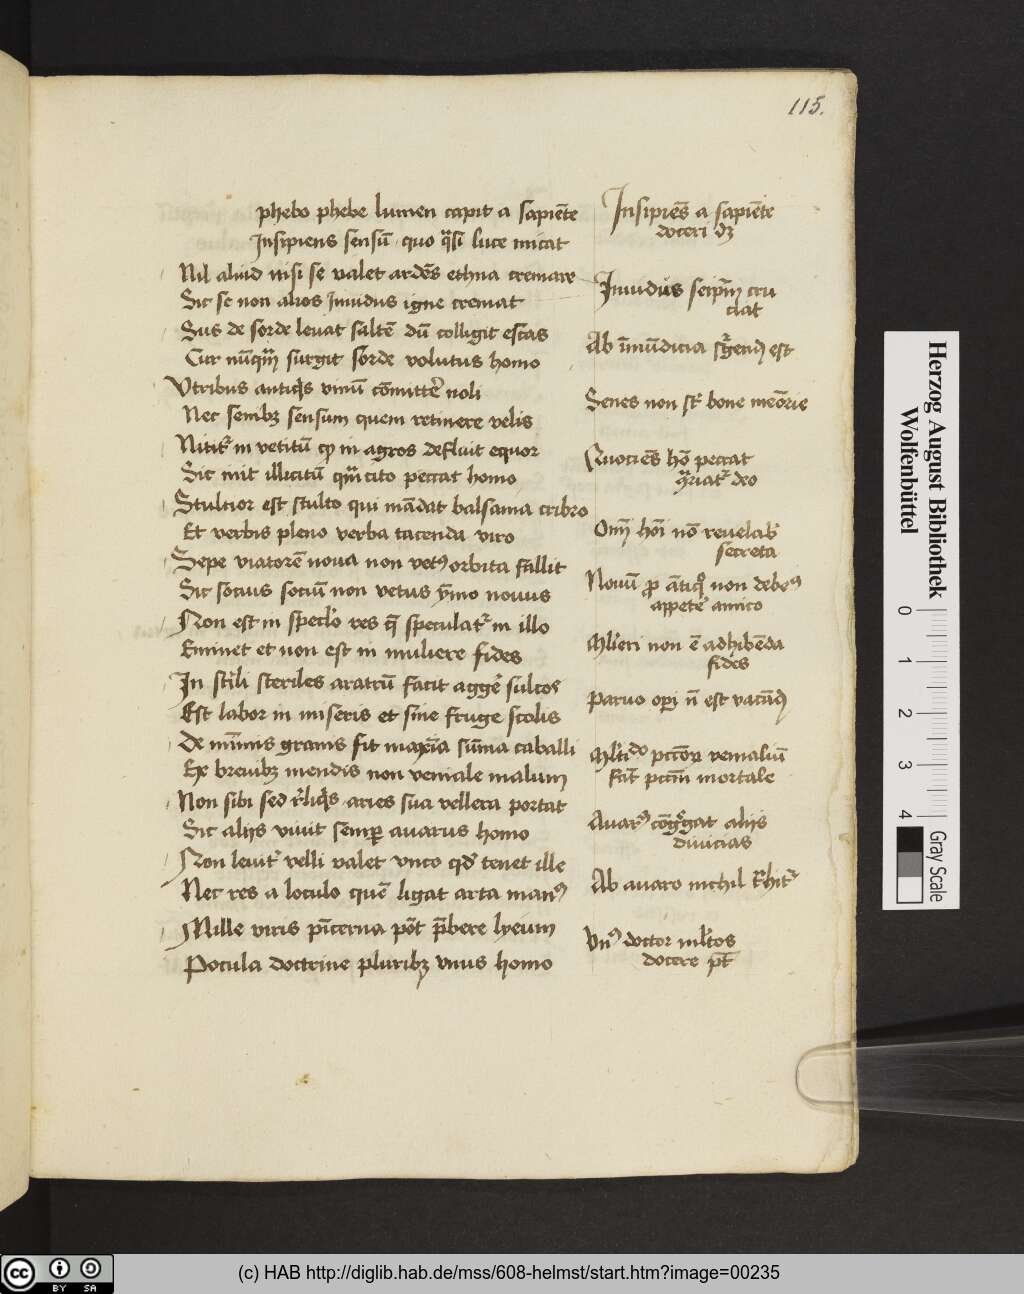 115.
phebo phebe lumen capit a sapiēte
Insipiens sensū quo q̄si luce micat
Nil aliud nisi se valet ardēs ethna cremare
Sic se non alios Inuidus igne cremat
Sus de sorde leuat saltē dū colligit escas
Cur nūqm̄ surgit sorde volutus homo
Vtribus antiqis vinū cōmitte noli
Nec senibꝫ sensum quem retinere velis
Nititr in vetitū in agros defluit equor
Sic mit illicitū qm̄cito peccat homo
Stultior est stulto qui mādat balsama cribro
Et verbis pleno verba tacenda viro
Sepe viatorē noua non vetꝰ orbita fallit
Sic socius sociū non vetus ymo nouus
Non est in speclo res q̄ speculatr in illo
Eminet et non est in muliere fides
In stili steriles aratrū facit agge sulcos
Est labor in miseris et sine fruge scolis
De mīnis granis fit maxīa sūma caballi
Ex breuibꝫ mendis non veniale malum
Non sibi sed rliqis aries sua vellera portat
Sic alijs viuit semꝑ auarus homo
Non leuitr velli valet vnco qd tenet ille
Nec res a loculo quē ligat arta manꝰ
Mille viris pīcerna pōt p̄bere lyeum
Pocula doctrine pluribꝫ vnus homo
Insipiēs a sapiēte
doceri dꝫ
Inuidus seipm̄ cru
ciat
Ab īmūdicia sgend est
Senes non st bone meōrie
Quociēs hō peccat
deo
Om̄ hoī nō reuelab
secreta
Nouū ꝓ ātiqo non debeꝰ
appete amico
Mlieri non ē adhibēda
fides
Paruo opi n̄ est vacād
venialiū
fit pctm̄ mortale
Auarꝰ cōggat alijs
diuicias
Ab auaro nichil
Vnꝰ doctor mltos
docere pt
Herzog August Bibliothek
Wolfenbüttel
0 1 2 3 4
Gray Scale
cc BY SA
(c) HAB http://diglib.hab.de/mss/608-helmst/start.htm?image=00235